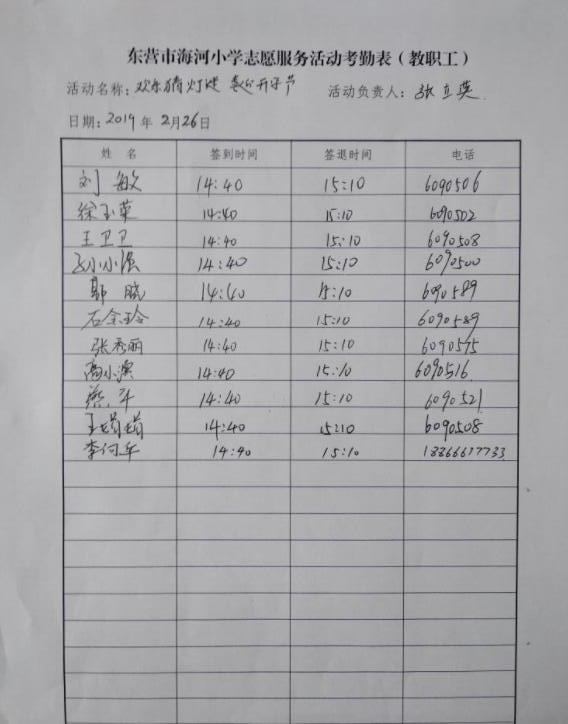 东营市海河小学志愿服务活动考勤表（教职工）
活动名称：欢乐猜灯谜 喜庆开学节 活动负责人：张立英
日期：2019年2月26日
姓名 签到时间 签退时间 电话
刘敏 14:40 15:10 6090506
徐玉英 14:40 15:10 6090502
王卫卫 14:40 15:10 6090508
孙小强 14:40 15:10 6090500
郭晓 14:40 15:10 6090589
石余玲 14:40 15:10 6090589
张秀丽 14:40 15:10 6090575
高小滨 14:40 15:10 6090516
燕平 14:40 15:10 6090521
王娟娟 14:40 15:10 6090508
李何军 14:40 15:10 18266617733